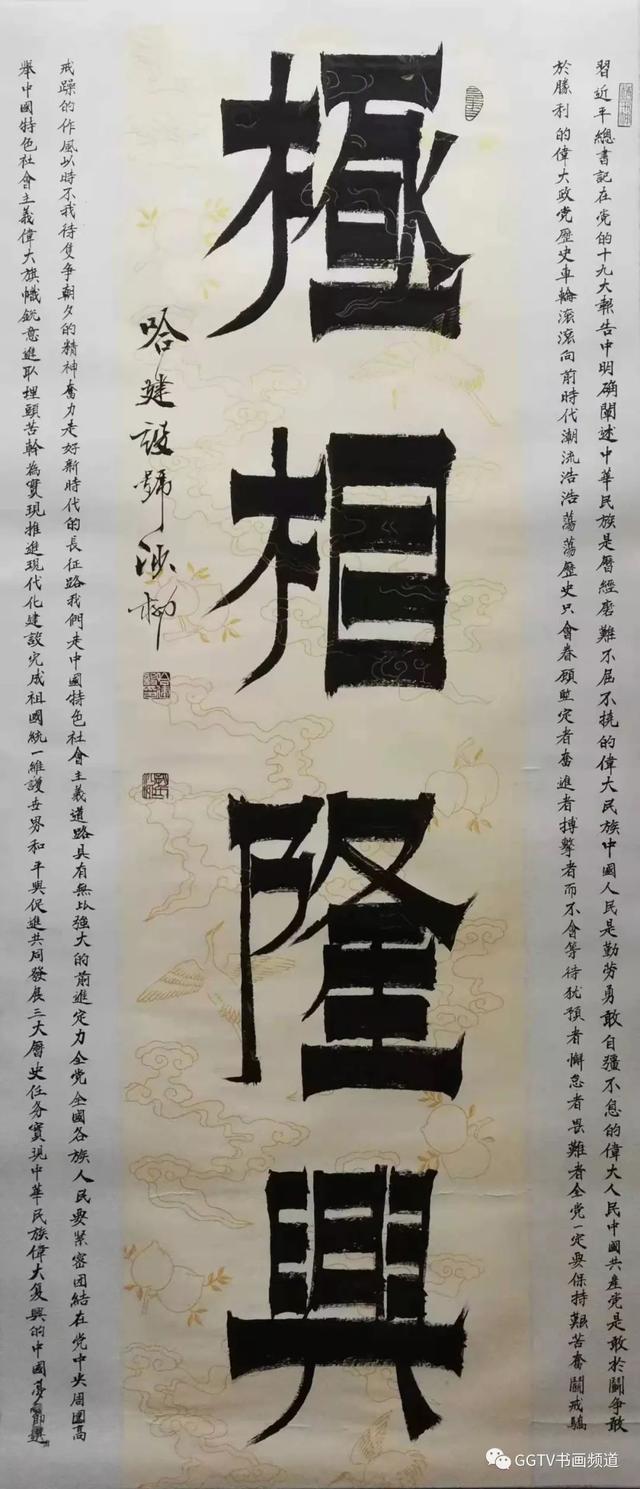 習近平總書記在党的十九大報告中明确闡述中華民族是曆經磨難不屈不撓的偉大民族中國人民是勤劳勇敢自彊不息的偉大人民中國共產党是敢於鬭争敢
於勝利的偉大政党歷史車輪滚滚向前時代潮流浩浩蕩蕩歷史只會眷顧堅定者奮進者搏擊者而不會等待犹預者懈怠者畏難者全党一定要保持艱苦奮鬭戒驕
極相隆興
哈建設號沙柳
戒躁的作風以時不我待隻争朝夕的精神奮力走好新時代的長征路我們走中國特色社會主義道路具有無比強大的前進定力全党全國各族人民要紧密团結在党中央周圍高
舉中國特色社會主義偉大旗幟銳意進取埋頭苦幹為實現推進現代化建設完成祖國統一維護世界和平與促進共同發展三大曆史任务實現中華民族偉大复興的中國夢節選
GGTV书画频道